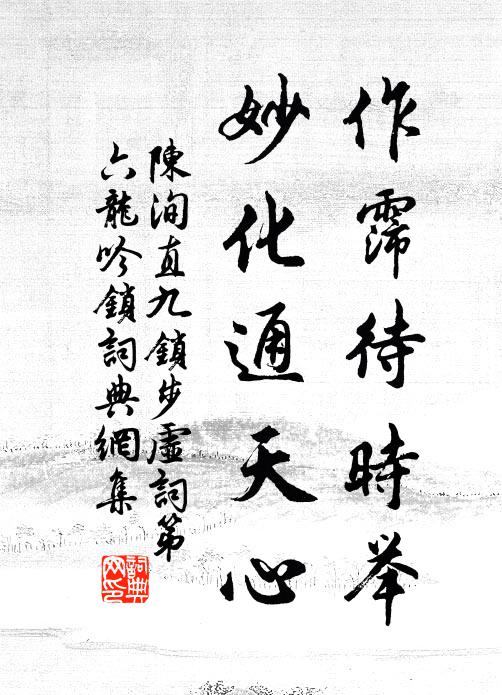 作霈待時举
妙化通天心
陳洵直九鎖步虛詞第
六龍吟鎖詞典網集
詞典网印